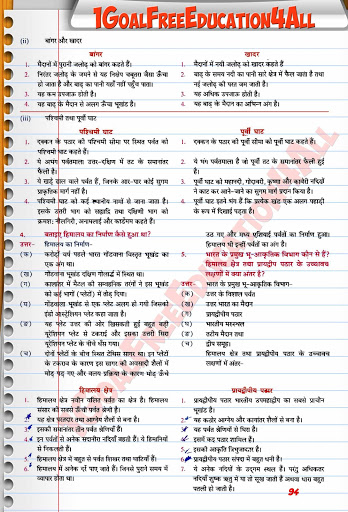 1GoalFreeEducation4All
(ii) बांगर और खादर
बांगर
1. मैदानों में पुरानी जलोढ़ को बांगर कहते हैं।
2. निरंतर जलोढ़ के जमने से यह निक्षेप चबूतरा जैसा ऊँचा
हो जाता है और बाढ़ का पानी यहाँ नहीं पहुँच पाता।
3. यह कम उपजाऊ होती है।
4. यह बाढ़ के मैदान से अलग ऊँचा भूखंड है।
खादर
1. मैदानों में नयी जलोढ़ को खादर कहते हैं
2. बाढ़ के समय नदी का पानी सारे क्षेत्र में फैल जाता है तथा
नई जलोढ़ की परत जम जाती है।
3. यह अधिक उपजाऊ होती है।
4. यह बाढ़ के मैदान का अभिन्न अंग है।
(iii) पश्चिमी तथा पूर्वी घाट
पश्चिमी घाट
1. दक्कन के पठार की पश्चिमी सीमा पर स्थित पर्वत को
पश्चिमी घाट कहते हैं।
2. ये अभंग पर्वतमाला उत्तर-दक्षिण में तट के समानांतर
फैली है।
3. ये खड़ी ढाल वाले पर्वत हैं, जिनके आर-पार कोई सुगम
प्राकृतिक मार्ग नहीं है।
4. पश्चिमी घाट को कई स्थानीय नामों से जाना जाता है।
इसके उत्तरी भाग को सह्याद्रि तथा दक्षिणी भाग को
क्रमशः नीलगिरी, अनामलाई और कार्डमम कहते हैं।
पूर्वी घाट
1. दक्कन के पठार की पूर्वी सीमा को पूर्वी घाट कहते हैं।
2. ये भंग पर्वतमाला है जो पूर्वी तट के समानांतर फैली हुई
है।
3. पूर्वी घाट को महानदी, गोदावरी, कृष्णा और कावेरी नदियों
ने काट कर आने-जाने का सुगम मार्ग प्रदान किया है।
4. पूर्वी घाट इतने भंग हैं कि प्रत्येक खंड एक अलग पहाड़ी
के रूप में दिखाई पड़ता है।
4. बताइए हिमालय का निर्माण कैसे हुआ था?
उत्तर- हिमालय का निर्माण-
(क) करोड़ों वर्ष पहले भारत गोंडवाना विस्तृत भूखंड का
एक अंग था।
(ख) गोंडवाना भूखंड दक्षिण गोलार्द्ध में स्थित था।
(ग) कालांतर में मैंटल की सम्वाहनिक तरंगों ने इस भूखंड
को कई भागों (प्लेटों) में तोड़ दिया।
(घ) गोंडवाना भूखंड से एक प्लेट अलग हो गयी जिसको
इंडो आस्ट्रेलियन प्लेट कहा जाता है।
(ङ) यह प्लेट उत्तर की ओर खिसकती हुई बहुत बड़ी
यूरेशियन प्लेट से टकराई और इसका उत्तरी सिरा
यूरेशियन प्लेट के नीचे धँस गया।
(च) दोनों प्लेटों के बीच स्थित टेथिस सागर था। इन प्लेटों
के टकराव के कारण इस सागर की अवसादी शैलों में
मोड़ पड़ गए और वलय प्रक्रिया के कारण मोड़ ऊँचे
उठ गए और मध्य एशियाई पर्वतों का निर्माण हुआ।
हिमालय भी इन्हीं पर्वतों का अंग है।
5. भारत के प्रमुख भू-आकृतिक विभाग कौन से हैं?
हिमालय क्षेत्र तथा प्रायद्वीप पठार के उच्चावच
लक्षणों में क्या अंतर है?
उत्तर भारत के प्रमुख भू-आकृतिक विभाग-
(क) उत्तर के विशाल पर्वत
(ख) उत्तर भारत का मैदान
(ग) प्रायद्वीपीय पठार
(घ) भारतीय मरुस्थल
(ङ) तटीय मैदान तथा
(च) द्वीप समूह।
हिमालय क्षेत्र तथा प्रायद्वीपीय पठार के उच्चावच
लक्षणों में अंतर-
हिमालयी क्षेत्र
1. हिमालय क्षेत्र नवीन वलित पर्वत का क्षेत्र है। हिमालय
संसार की सबसे ऊँची पर्वत श्रेणी है।
2. यह क्षेत्र परतदार तथा आग्नेय शैलों से बना है।
3. इसकी समानांतर तीन पर्वत श्रेणियाँ हैं।
4. इन पर्वतों से अनेक सदानीरा नदियाँ बहती हैं। ये हिमानियों
से निकलती हैं।
5. हिमालय क्षेत्र में बहुत से पर्वत शिखर तथा घाटियाँ हैं।
6. हिमालय में अनेक दर्रे पाए जाते हैं जिनसे पुराने समय में
व्यापार होता था।
प्रायद्वीपीय पठार
1. प्रायद्वीपीय पठार भारतीय उपमहाद्वीप का सबसे प्राचीन
भूखंड है।
2. यह कठोर आग्नेय और कायांतर शैलों से बना है।
3. यह पर्वत श्रेणियों से घिरा है।
4. इसमें कई पठार शामिल हैं।
5. इसकी आकृति त्रिभुजाकार है।
6. प्रायद्वीपीय पठार संपदा में बहुत धनी है।
7. ये अनेक नदियों के उद्गम स्थल हैं। परंतु अधिकतर
नदियाँ शुष्क ऋतु में या तो सूख जाती हैं अथवा धारा बहुत
पतली हो जाती है।
94